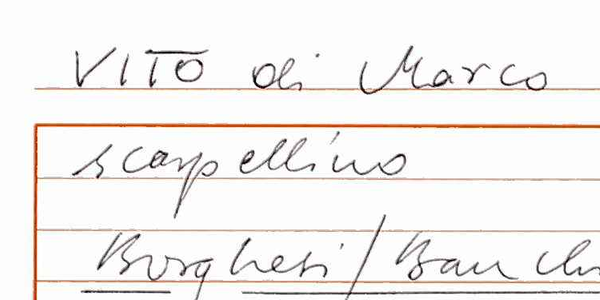 VITO di Marco
scarpellino
Borghesi/